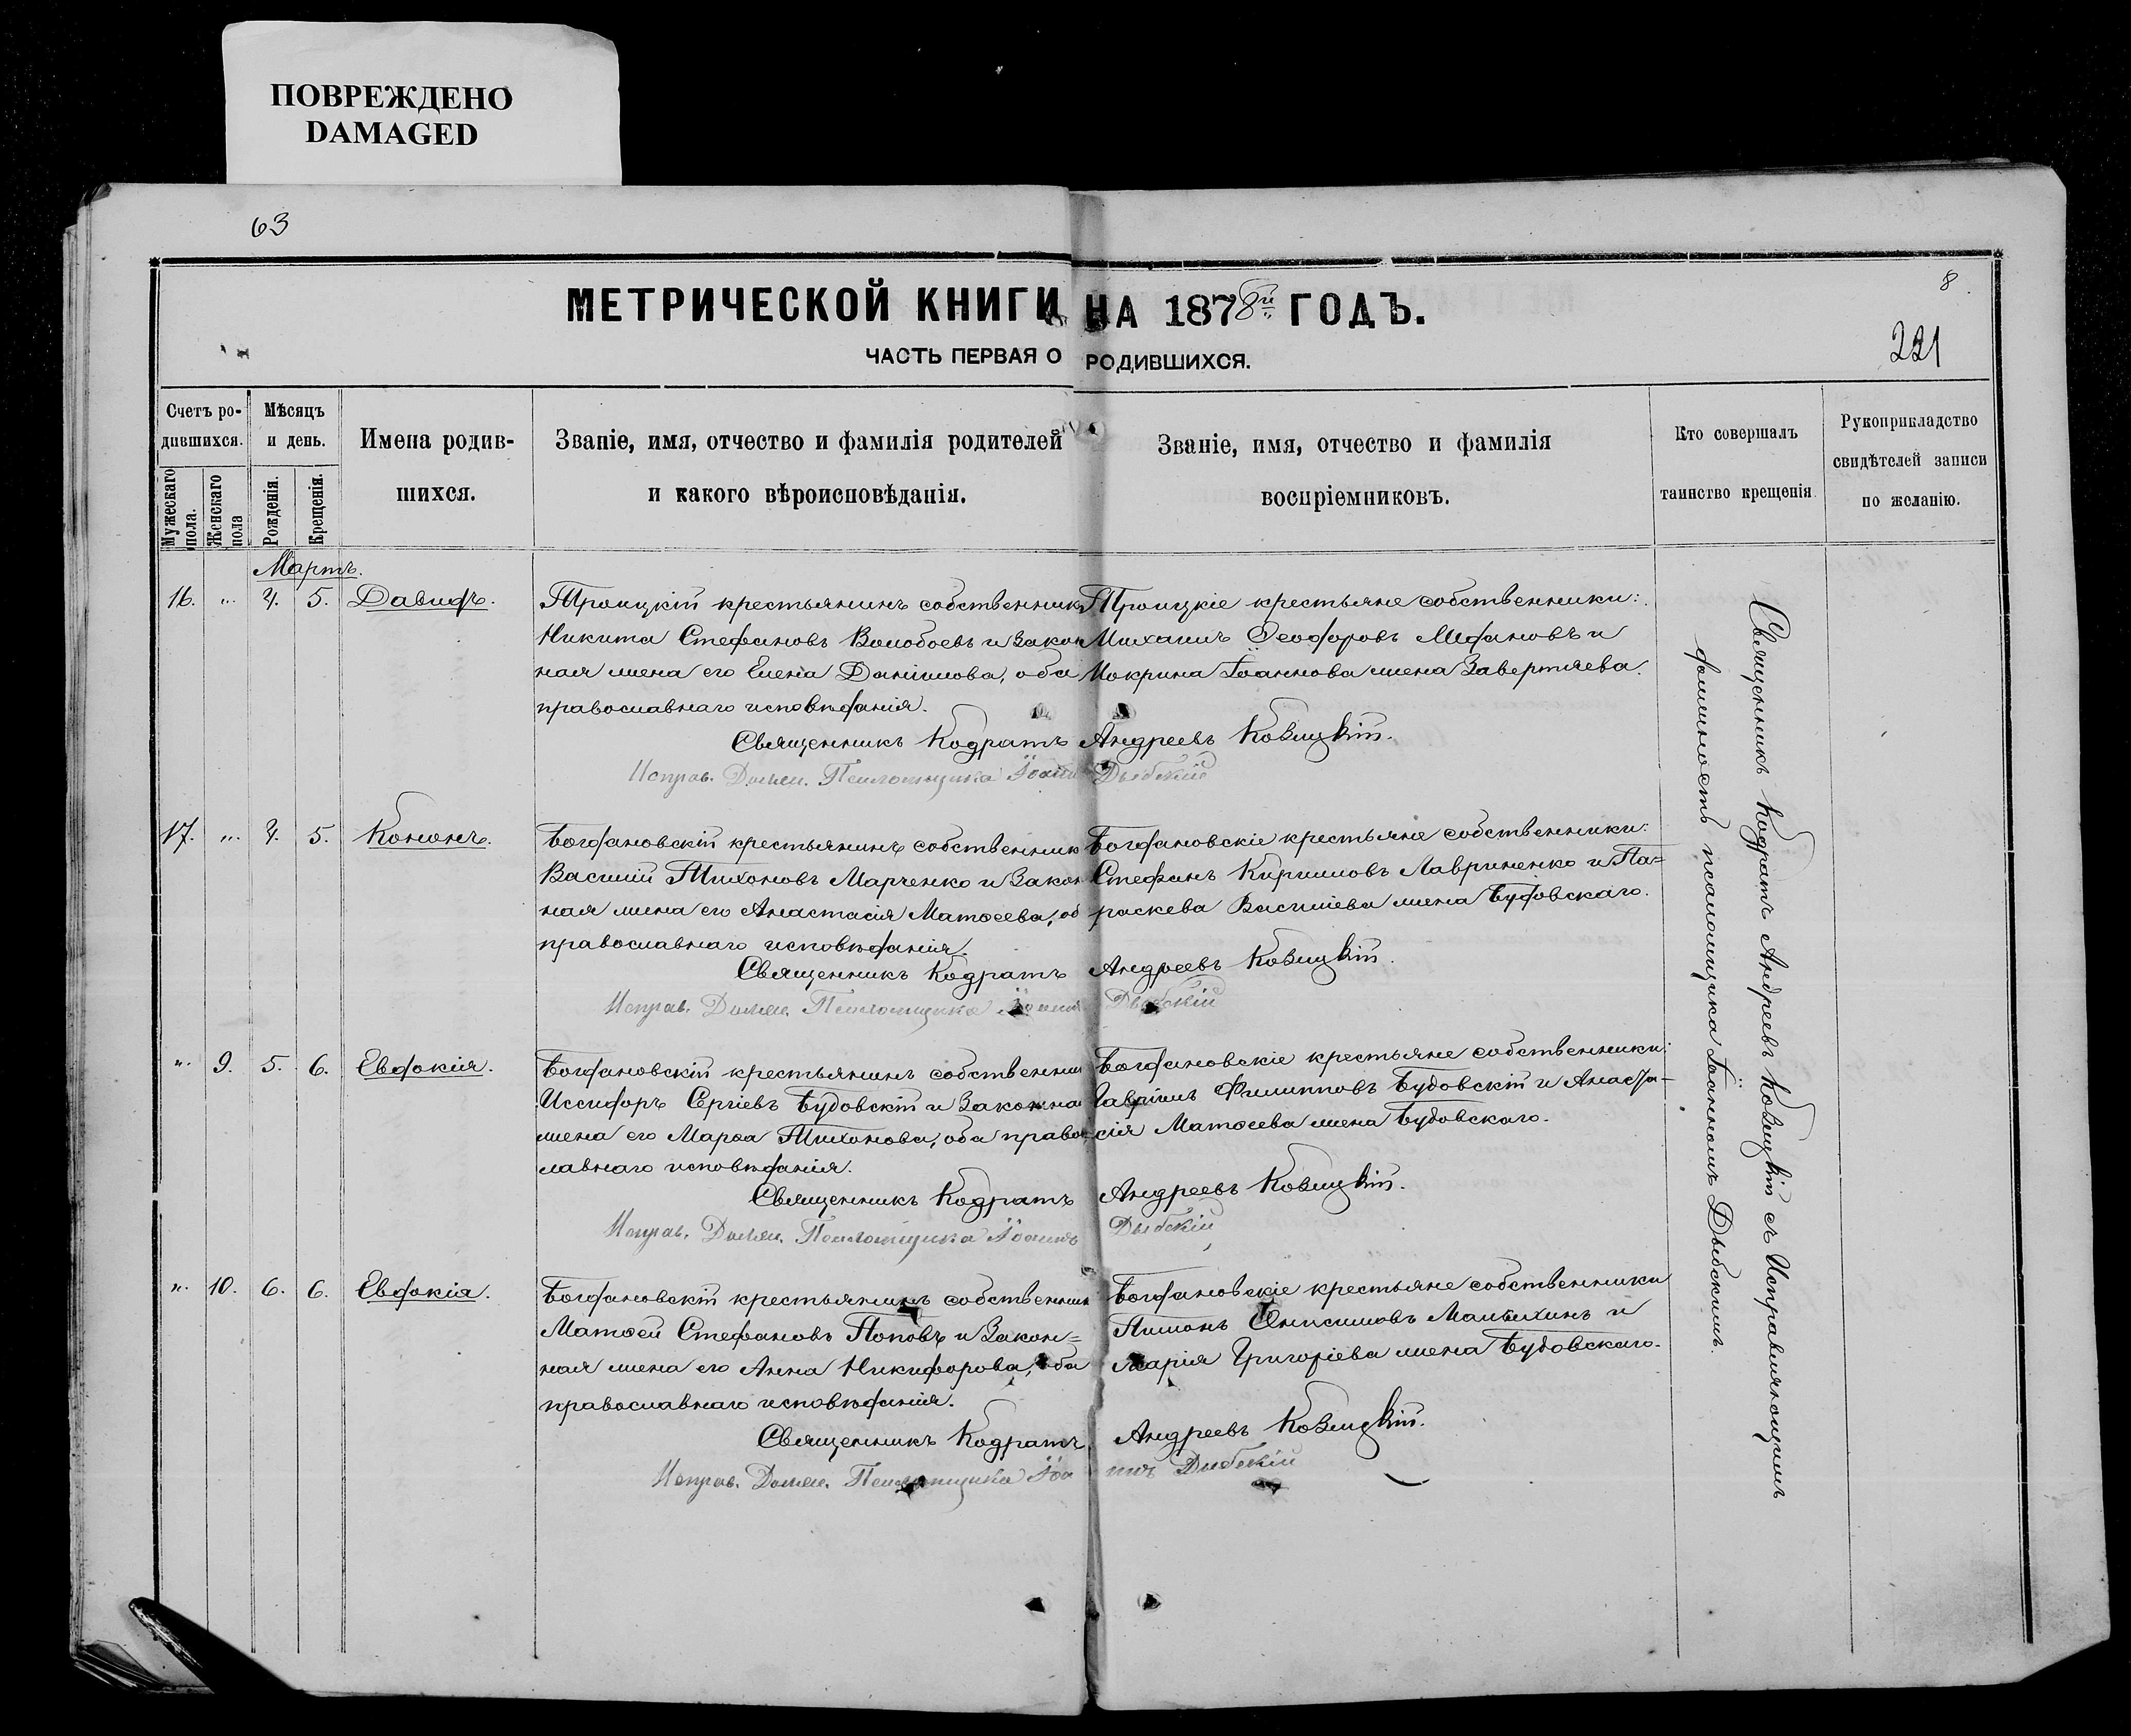 ПОВРЕЖДЕНО
DAMAGED
63
8.
МЕТРИЧЕСКОЙ КНИГИ НА 1878й ГОДЪ.
221
ЧАСТЬ ПЕРВАЯ О РОДИВШИХСЯ.
Счетъ ро-
дившихся.
Мужескаго пола.
Женскаго пола
Мѣсяцъ
и день.
Рожденія.
Крещенія.
Имена родив-
шихся.
Званіе, имя, отчество и фамилія родителей
и какого вѣроисповѣданія.
Званіе, имя, отчество и фамилія
воспріемниковъ.
Кто совершалъ
таинство крещенія.
Рукоприкладство
свидѣтелей записи
по желанію.
Мартъ.
16. „. 4. 5. Давидъ.
Троицкій крестьянинъ собственник
Никита Стефановъ Волобоевъ и Закон
ная жена его Елена Даніилова, оба
православнаго исповѣданія.
Троицкіе крестьяне собственники:
Михаилъ Ѳеодоровъ и
Мокрина Іоаннова жена Завертяева.
Священникъ Кодратъ Андреевъ Козицкій.
Исправ. Должн. Псаломщика Іоаннъ Дыбскій
17. „. 4. 5. Кононъ.
Богдановскій крестьянинъ собственник
Василій Тихоновъ Марченко и Закон
ная жена его Анастасія Матѳеева, об
православнаго исповѣданія.
Богдановскіе крестьяне собственники:
Стефанъ Кирилловъ Лавриненко и Па=
раскева Василіева жена Будовскаго.
Священникъ Кодратъ Андреевъ Козицкій.
Исправ. Должн. Псаломщика Іоаннъ Дыбскій
„. 9. 5. 6. Евдокія.
Богдановскій крестьянинъ собственник
Иссидоръ Сергіевъ Будовскій и Законна
жена его Марѳа Тихонова, оба правос
лавнаго исповѣданія.
Богдановскіе крестьяне собственники:
Гавріилъ Филипповъ Будовскій и Анаста-
сія Матѳеева жена Будовскаго.
Священникъ Кодратъ Андреевъ Козицкій.
Исправ. Должн. Псаломщика Іоаннъ Дыбскій
„. 10. 6. 6. Евдокія.
Богдановскій крестьянинъ собственник
Матѳей Стефановъ Поповъ и Закон=
ная жена его Анна Никифорова, оба
православнаго исповѣданія.
Богдановскіе крестьяне собственники
Пимонъ Онисимовъ Малыхинъ и
Марія Григоріева жена Будовскаго.
Священникъ Кодратъ Андреевъ Козицкій.
Исправ. Должн. Псаломщика Іоаннъ Дыбскій
Священникъ Кодратъ Андреевъ Козицкій съ Исправляющимъ
должность псаломщика Іоанномъ Дыбскимъ.